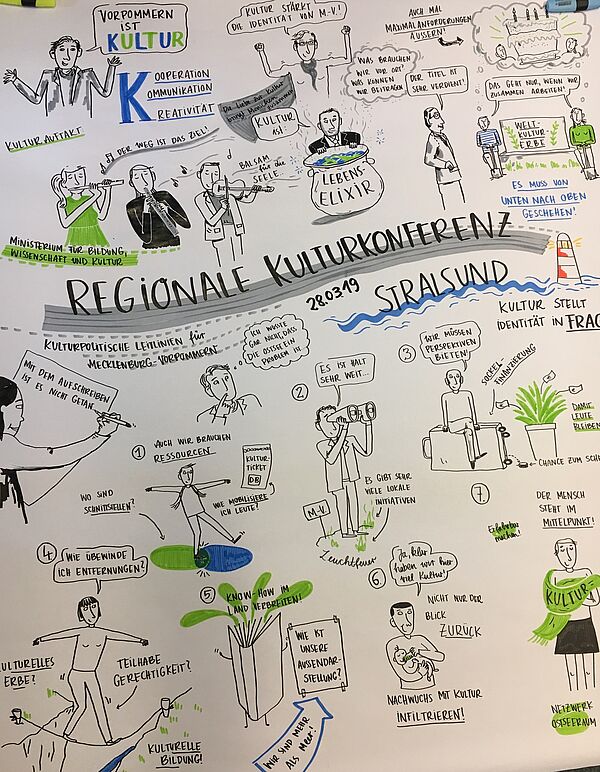 VORPOMMERN
IST
KULTUR
KOOPERATION
KOMMUNIKATION
KREATIVITÄT
KULTURAUFTAKT
KULTUR STÄRKT
DIE IDENTITÄT VON M-V!
AUCH MAL
MAXIMALANFORDERUNGEN
ÄUSSERN!
WAS BRAUCHEN
WIR VOR ORT?
WAS KÖNNEN
WIR BEITRAGEN
DER TITEL IST
SEHR VERDIENT!
DAS GEHT NUR, WENN WIR
ZUSAMMEN ARBEITEN!
WELT-
KULTUR-
ERBE
ES MUSS VON
UNTEN NACH OBEN
GESCHEHEN!
Die Liebe zur Kultur
bringt Menschen
zusammen
KULTUR
IST
LEBENS-
ELIXIR
"DER WEG IST DAS ZIEL"
BALSAM
für die
SEELE
MINISTERIUM FÜR BILDUNG,
WISSENSCHAFT UND KULTUR
REGIONALE KULTURKONFERENZ
28.03.19
STRALSUND
KULTUR STELLT
IDENTITÄT IN FRAG
KULTURPOLITISCHE LEITLINIEN für
MECKLENBURG-VORPOMMERN
MIT DEM AUFSCHREIBEN
IST ES NICHT GETAN
ICH WUSSTE
GAR NICHT, DASS
DIE OSTSEE EIN
PROBLEM IST
1
AUCH WIR BRAUCHEN
RESSOURCEN
KULTUR
TICKET
DB
WO SIND
SCHNITTSTELLEN?
WIE MOBILISIERE
ICH LEUTE?
2
ES IST HALT
SEHR WEIT...
M-V
ES GIBT SEHR
VIELE LOKALE
INITIATIVEN
Leuchtfeuer
3
WIR MÜSSEN
PERSPEKTIVEN
BIETEN!
SOCKEL-
FINANZIERUNG
DAMIT
LEUTE
BLEIBEN
CHANCE ZUM SCH
4
WIE ÜBERWINDE
ICH ENTFERNUNGEN?
KULTURELLES
ERBE?
TEILHABE
GERECHTIGKEIT?
KULTURELLE
BILDUNG!
5
KNOW-HOW IM
LAND VERBREITEN!
WIE IST
UNSERE
AUSSENDAR-
STELLUNG?
WIR SIND MEHR
ALS MEER!
6
Ja, klar
haben wir hier
viel Kultur!
NICHT NUR DER
BLICK
ZURÜCK
NACHWUCHS MIT KULTUR
INFILTRIEREN!
7
Erlebbar
machen!
DER MENSCH
STEHT IM
MITTELPUNKT!
KULTUR-
NETZWERK
OSTSEERAUM